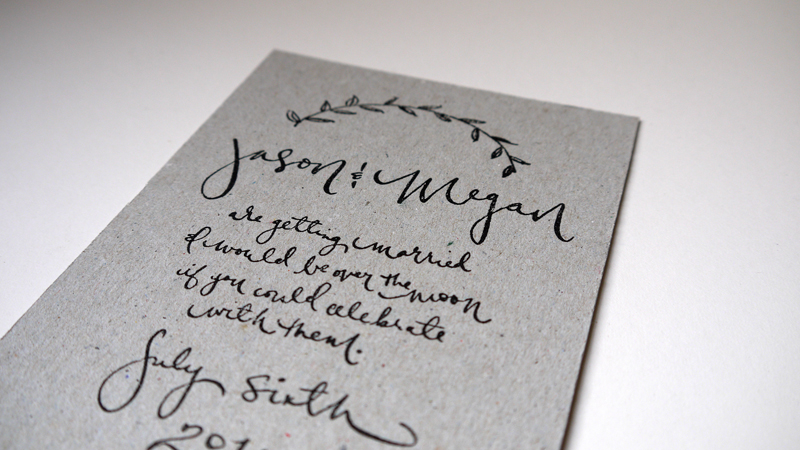 Jason & Megan
are getting married
& would be over the moon
if you could celebrate
with them.
July Sixth